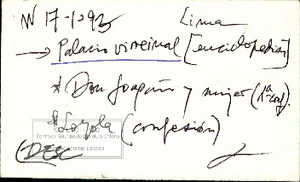 N 17-1093 Lima
→ Palacio virreinal [enciclopedias]
* Don Joaquín y mujer (1ª conf.)
* Loyola (confesión)
(DEC